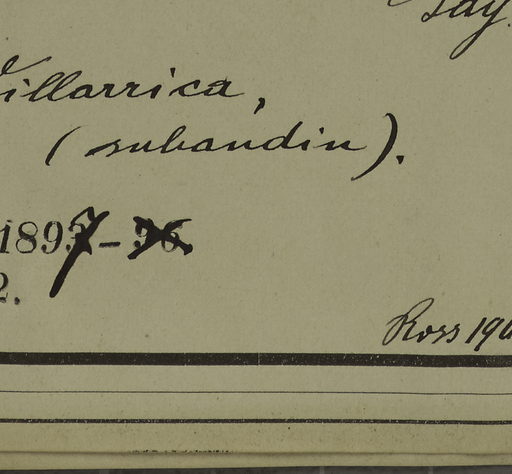 Say.
Villarrica,
(subandin).
1897-
2.
Ross 19